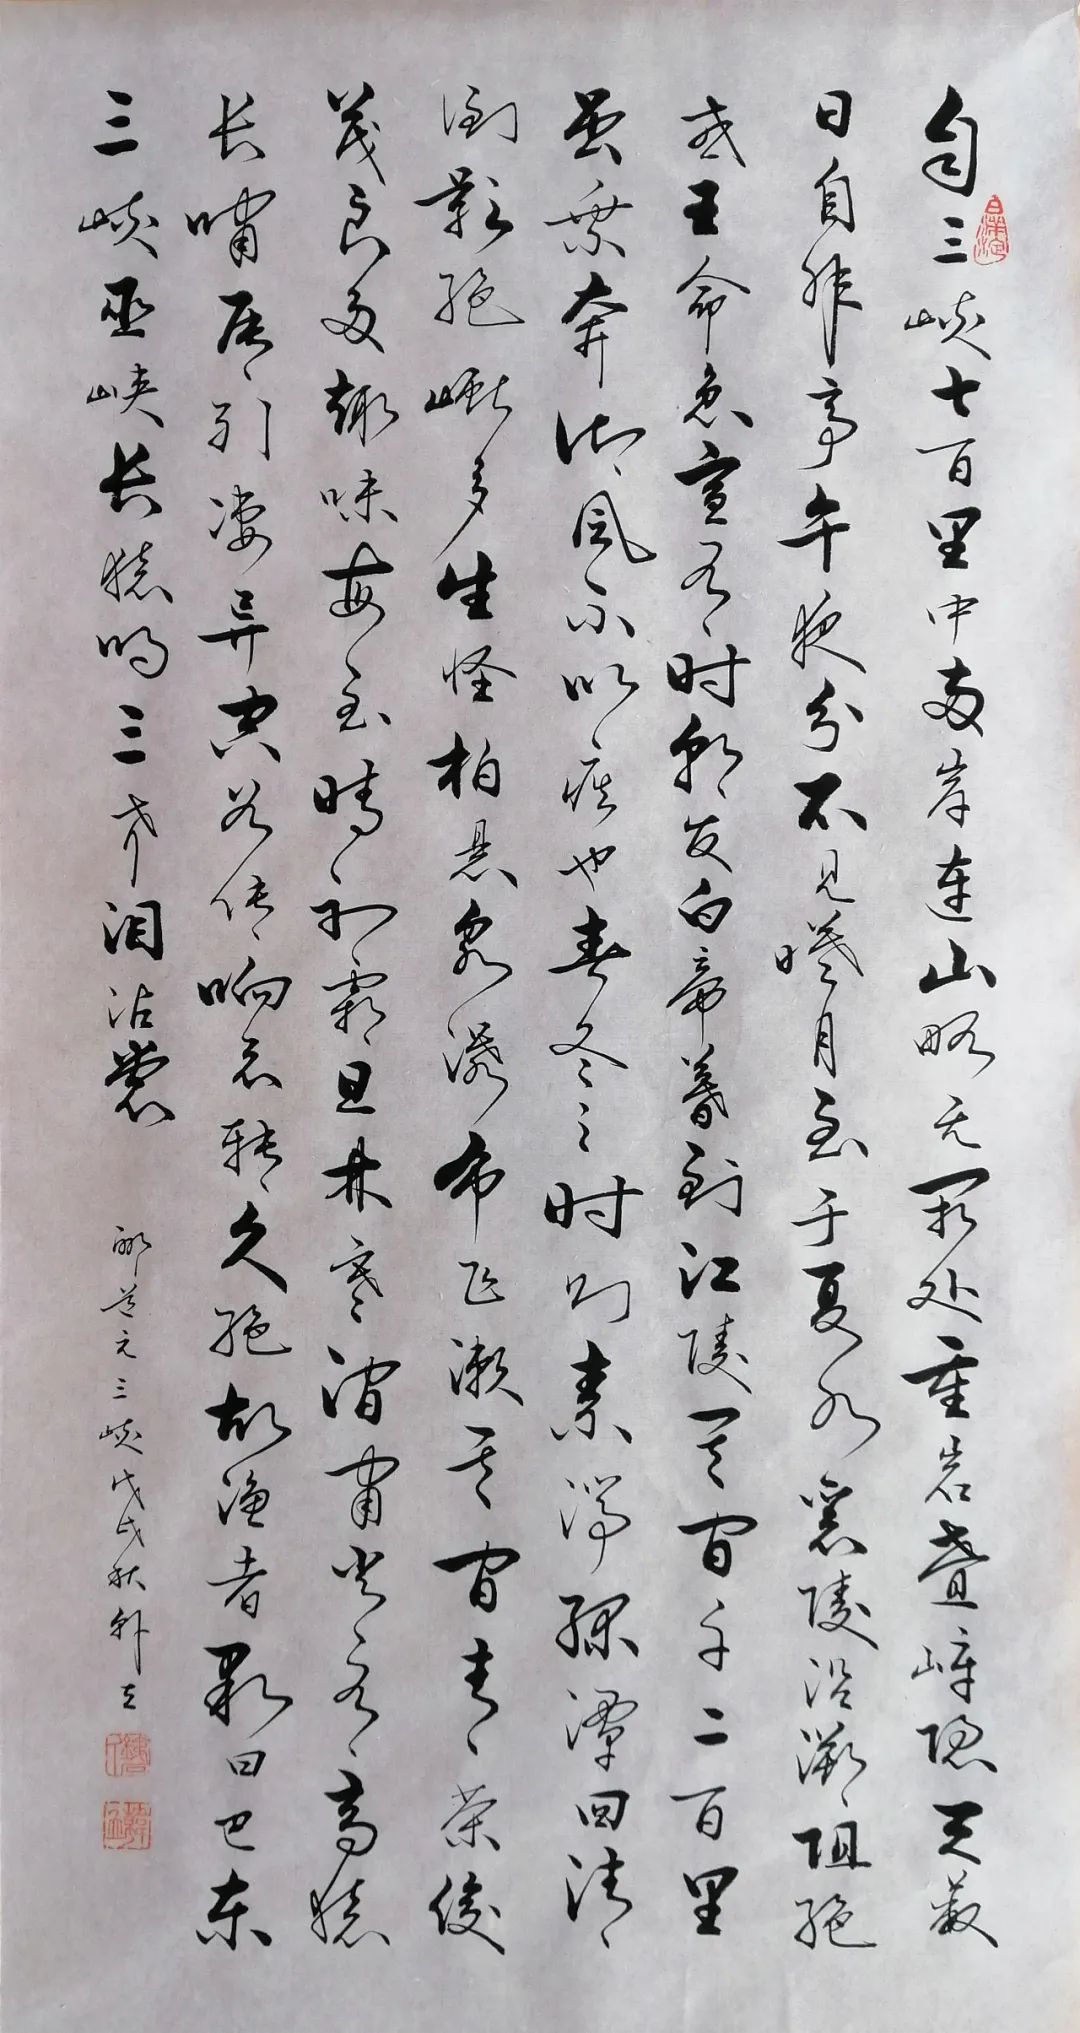 自三峡七百里中两岸连山略无阙处重岩叠嶂隐天蔽
日自非亭午夜分不见曦月至于夏水襄陵沿溯阻绝
或王命急宣有时朝发白帝暮到江陵其间千二百里
虽乘奔御风不以疾也春冬之时则素湍绿潭回清
倒影绝巘多生怪柏悬泉瀑布飞漱其间青荣俊
茂良多趣味每至晴初霜旦林寒涧肃常有高猿
长啸属引凄异空谷传响哀转久绝故渔者歌曰巴东
三峡巫峡长猿鸣三声泪沾裳
郦道元三峡戊戌秋